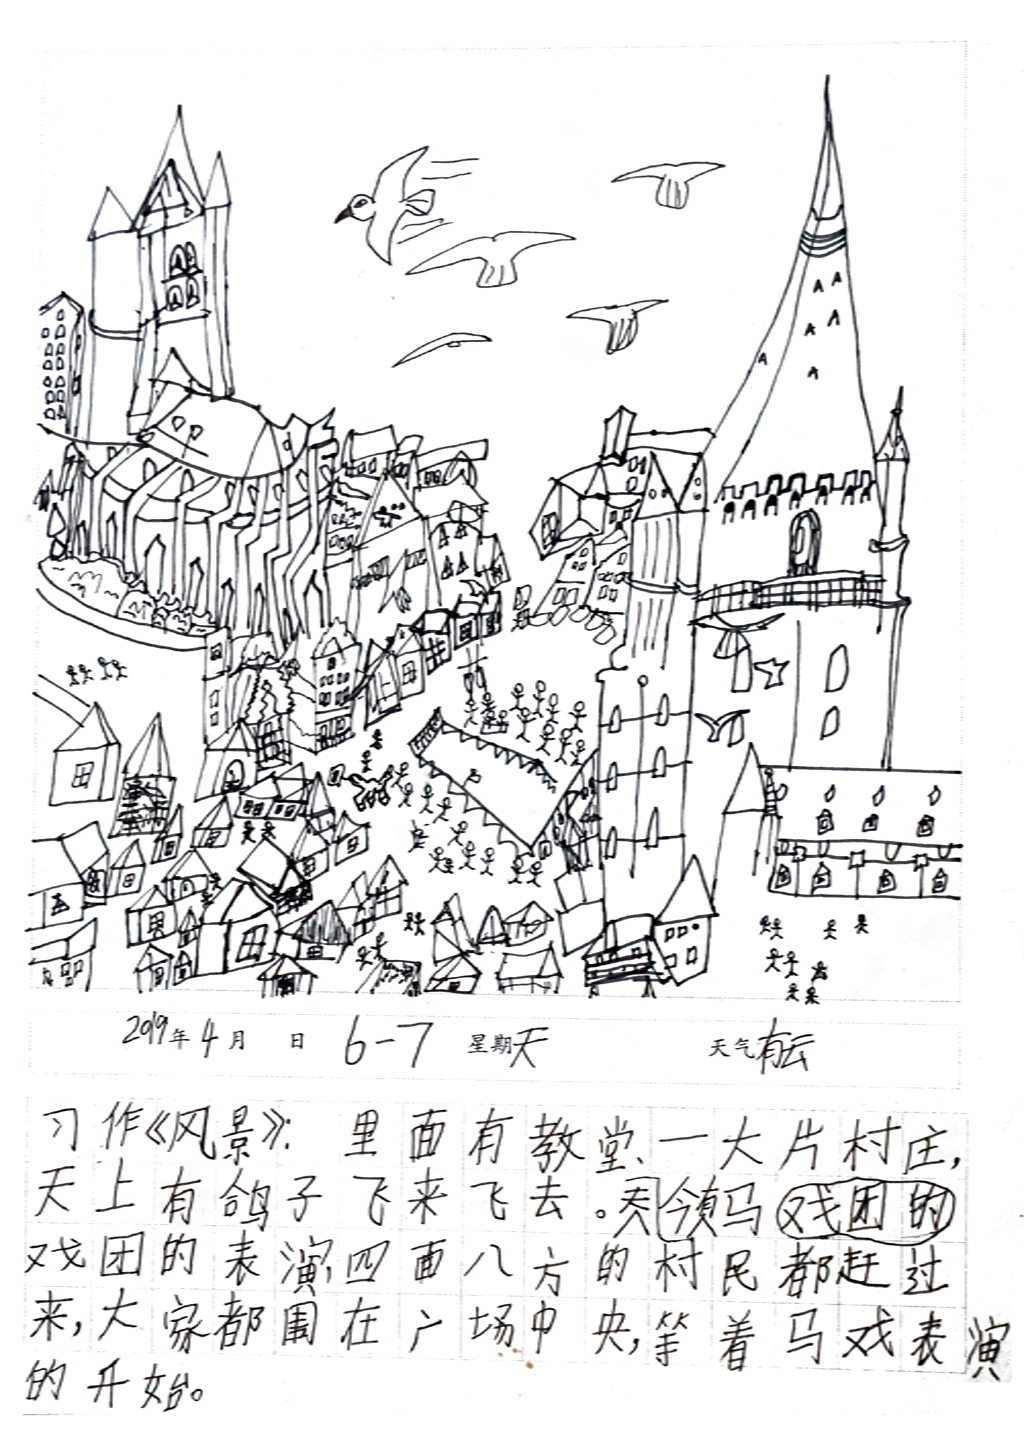 2019年4月 日 6-7 星期天 天气有云
习作《风景》: 里面有教堂、一大片村庄,
天上有鸽子飞来飞去。 马戏团的
戏团的表演,四面八方的村民都赶过
来,大家都围在广场中央,等着马戏表演
的开始。